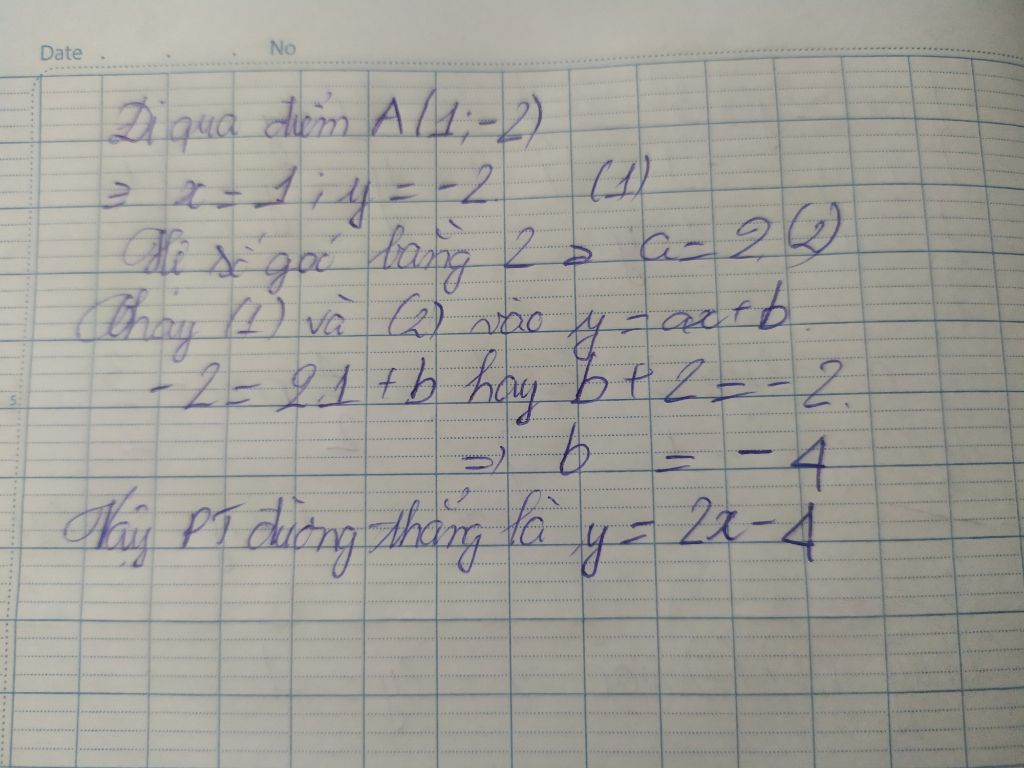 Date No
Đi qua điểm A(1;-2)
=> x = 1; y = -2. (1)
Hệ số góc bằng 2 => a = 2 (2)
Thay (1) và (2) vào y = ax + b.
-2 = 2.1 + b hay b + 2 = -2.
=> b = -4
Vậy PT đường thẳng là y = 2x - 4
5